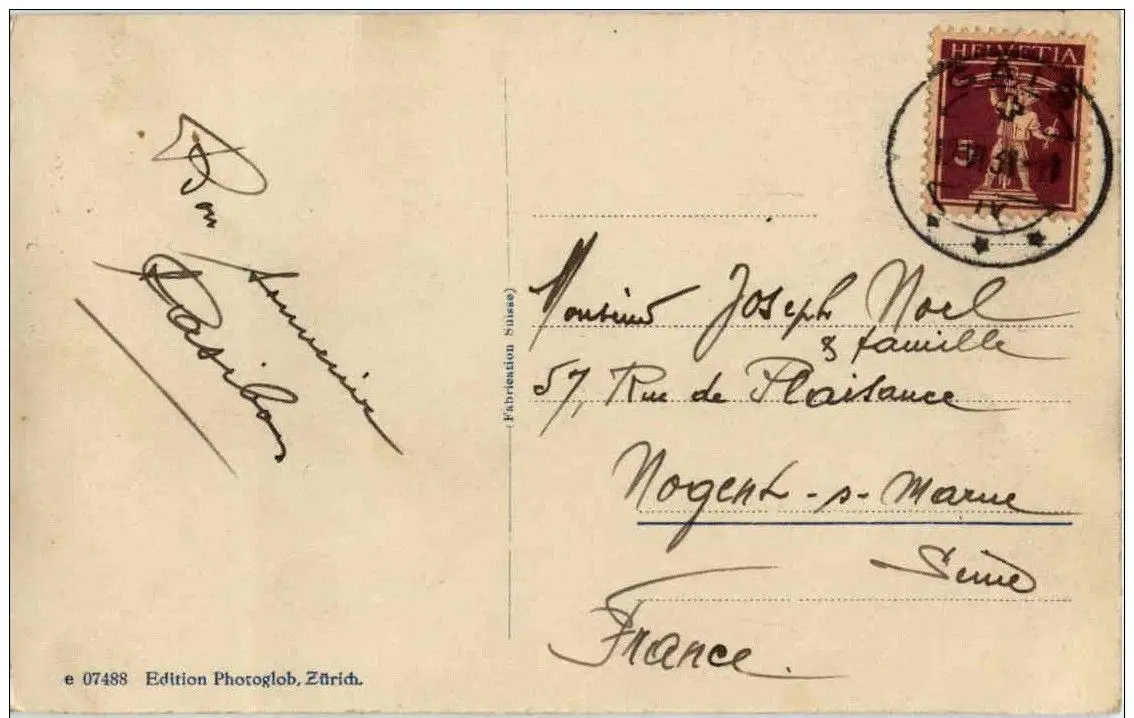 HELVETIA
5
Bon
souvenir
(Fabrication Suisse)
Monsieur Joseph Noel
& famille
57, Rue de Plaisance
Nogent-s-Marne
Seine
France.
e 07488 Edition Photoglob, Zürich.